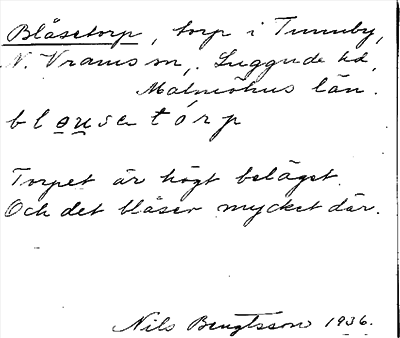 Blåsetorp, torp i Tunnby,
N. Vrams sn, Luggude hd,
Malmöhus län.
blousatórp
Torpet är högt beläget.
Och det blåser mycket där.
Nils Bengtsson 1936.